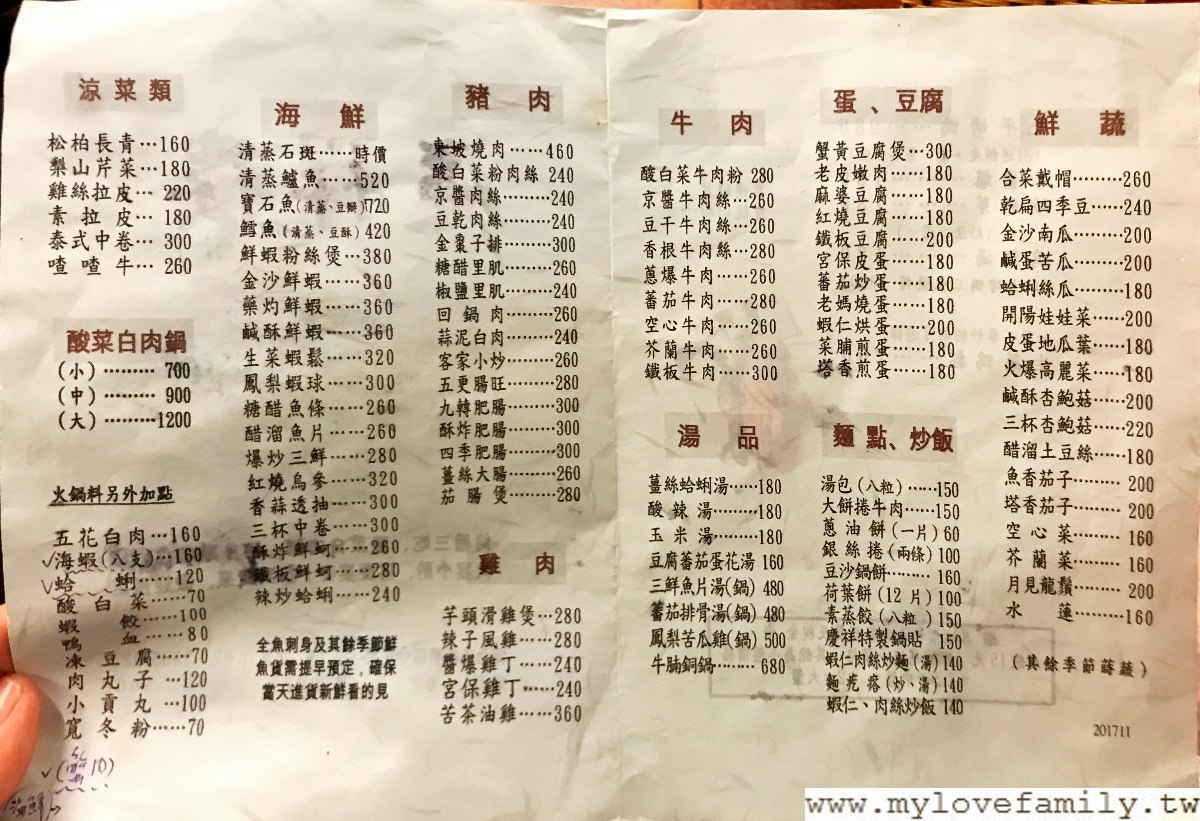 涼菜類
松柏長青…160
梨山芹菜…180
雞絲拉皮… 220
素拉皮… 180
泰式中卷… 300
喳喳牛… 260
酸菜白肉鍋
(小)……… 700
(中)……… 900
(大)………1200
火鍋料另外加點
五花白肉…160
海蝦(八支)…160
蛤蜊……120
酸白菜……70
蝦餃……100
鴨血……80
凍豆腐……70
肉丸子…120
小貢丸…100
寬冬粉……70
海鮮
清蒸石斑……時價
清蒸鱸魚……520
寶石魚(清蒸、豆瓣)720
鱈魚(清蒸、豆酥) 420
鮮蝦粉絲煲…380
金沙鮮蝦……360
藥灼鮮蝦……360
鹹酥鮮蝦……360
生菜蝦鬆……320
鳳梨蝦球……300
糖醋魚條……260
醋溜魚片……260
爆炒三鮮……280
紅燒烏參……320
香蒜透抽……300
三杯中卷……300
酥炸鮮蚵……260
鐵板鮮蚵……280
辣炒蛤蜊……240
全魚刺身及其餘季節鮮
魚貨需提早預定，確保
當天進貨新鮮看的見
豬肉
東坡燒肉……460
酸白菜粉肉絲 240
京醬肉絲………240
豆乾肉絲………240
金棗子排………300
糖醋里肌………260
椒鹽里肌………240
回鍋肉………260
蒜泥白肉………240
客家小炒………260
五更腸旺………280
九轉肥腸………300
酥炸肥腸………300
四季肥腸………300
薑絲大腸………260
茄腸煲………280
雞肉
芋頭滑雞煲…280
辣子風雞……280
醬爆雞丁……240
宮保雞丁……240
苦茶油雞……360
牛肉
酸白菜牛肉粉 280
京醬牛肉絲…260
豆干牛肉絲…260
香根牛肉絲…280
蔥爆牛肉……260
蕃茄牛肉……280
空心牛肉……260
芥蘭牛肉……260
鐵板牛肉……300
湯品
薑絲蛤蜊湯……180
酸辣湯………180
玉米湯………180
豆腐蕃茄蛋花湯 160
三鮮魚片湯(鍋) 480
蕃茄排骨湯(鍋) 480
鳳梨苦瓜雞(鍋) 500
牛腩銅鍋……… 680
蛋、豆腐
蟹黃豆腐煲…300
老皮嫩肉……180
麻婆豆腐……180
紅燒豆腐……180
鐵板豆腐……200
宮保皮蛋……180
蕃茄炒蛋……180
老媽燒蛋……180
蝦仁烘蛋……200
菜脯煎蛋……180
塔香煎蛋……180
麵點、炒飯
湯包(八粒)……150
大餅捲牛肉……150
蔥油餅(一片) 60
銀絲捲(兩條) 100
豆沙鍋餅……… 160
荷葉餅(12片) 100
素蒸餃(八粒) 150
慶祥特製鍋貼 150
蝦仁肉絲炒麵(湯) 140
麵疙瘩(炒、湯) 140
蝦仁、肉絲炒飯 140
鮮蔬
合菜戴帽………260
乾扁四季豆……240
金沙南瓜………200
鹹蛋苦瓜………200
蛤蜊絲瓜………180
開陽娃娃菜……200
皮蛋地瓜葉……180
火爆高麗菜……180
鹹酥杏鮑菇……200
三杯杏鮑菇……220
醋溜土豆絲……180
魚香茄子……… 200
塔香茄子……… 200
空心菜……… 160
芥蘭菜……… 160
月見龍鬚……… 200
水蓮………160
(其餘季節蒔蔬)
201711
www.mylovefamily.tw